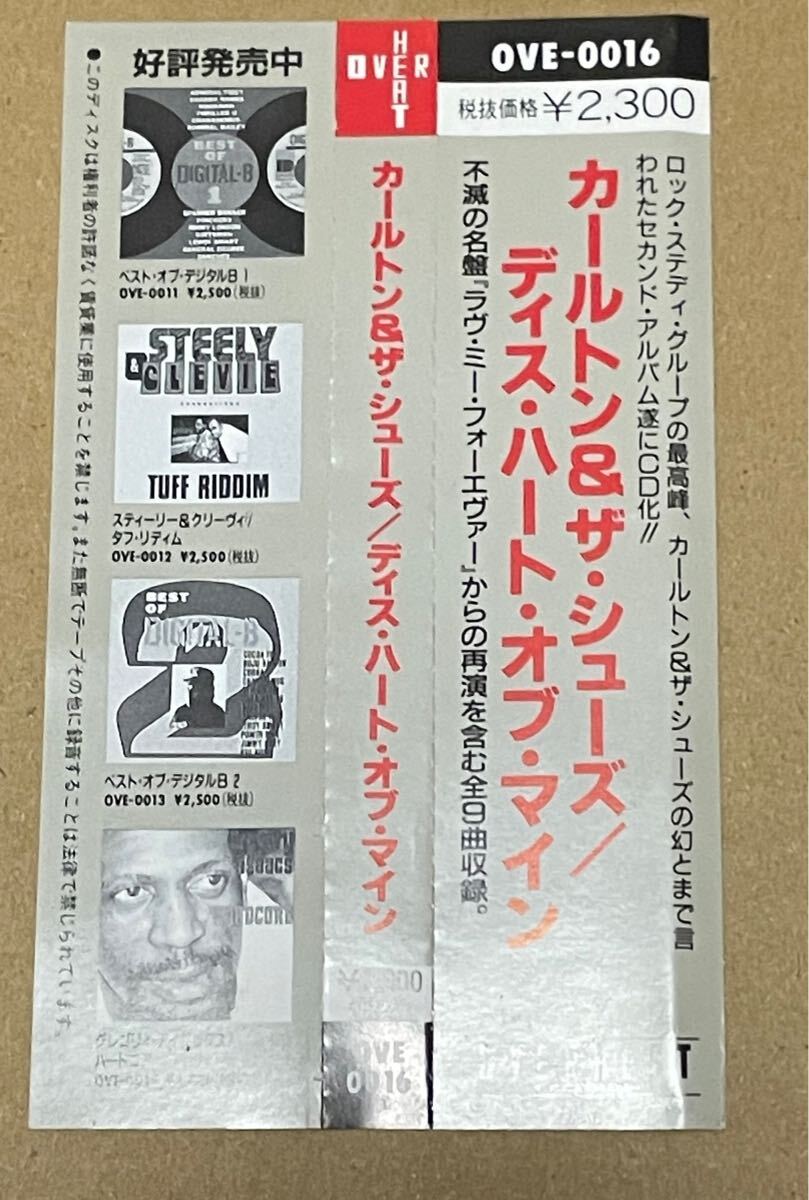 OVE-0016
税抜価格 ¥2,300
ロック・ステディ・グループの最高峰、カールトン&ザ・シューズの幻とまで言
われたセカンド・アルバム遂にCD化!!
カールトン&ザ・シューズ/
ディス・ハート・オブ・マイン
不滅の名盤『ラヴ・ミー・フォーエヴァー』からの再演を含む全9曲収録。
T
OVER HEAT
カールトン&ザ・シューズ/ディス・ハート・オブ・マイン
OVE
0016
好評発売中
BEST
OF
DIGITAL-B
1
ベスト・オブ・デジタルB 1
OVE-0011 ¥2,500(税抜)
STEELY
& CLEVIE
TUFF RIDDIM
スティーリー&クリーヴィ/
タフ・リディム
OVE-0012 ¥2,500(税抜)
BEST
OF
DIGITAL-B
2
ベスト・オブ・デジタルB 2
OVE-0013 ¥2,500(税抜)
●このディスクは権利者の許諾なく賃貸業に使用することを禁じます。また無断でテープその他に録音することは法律で禁じられています。